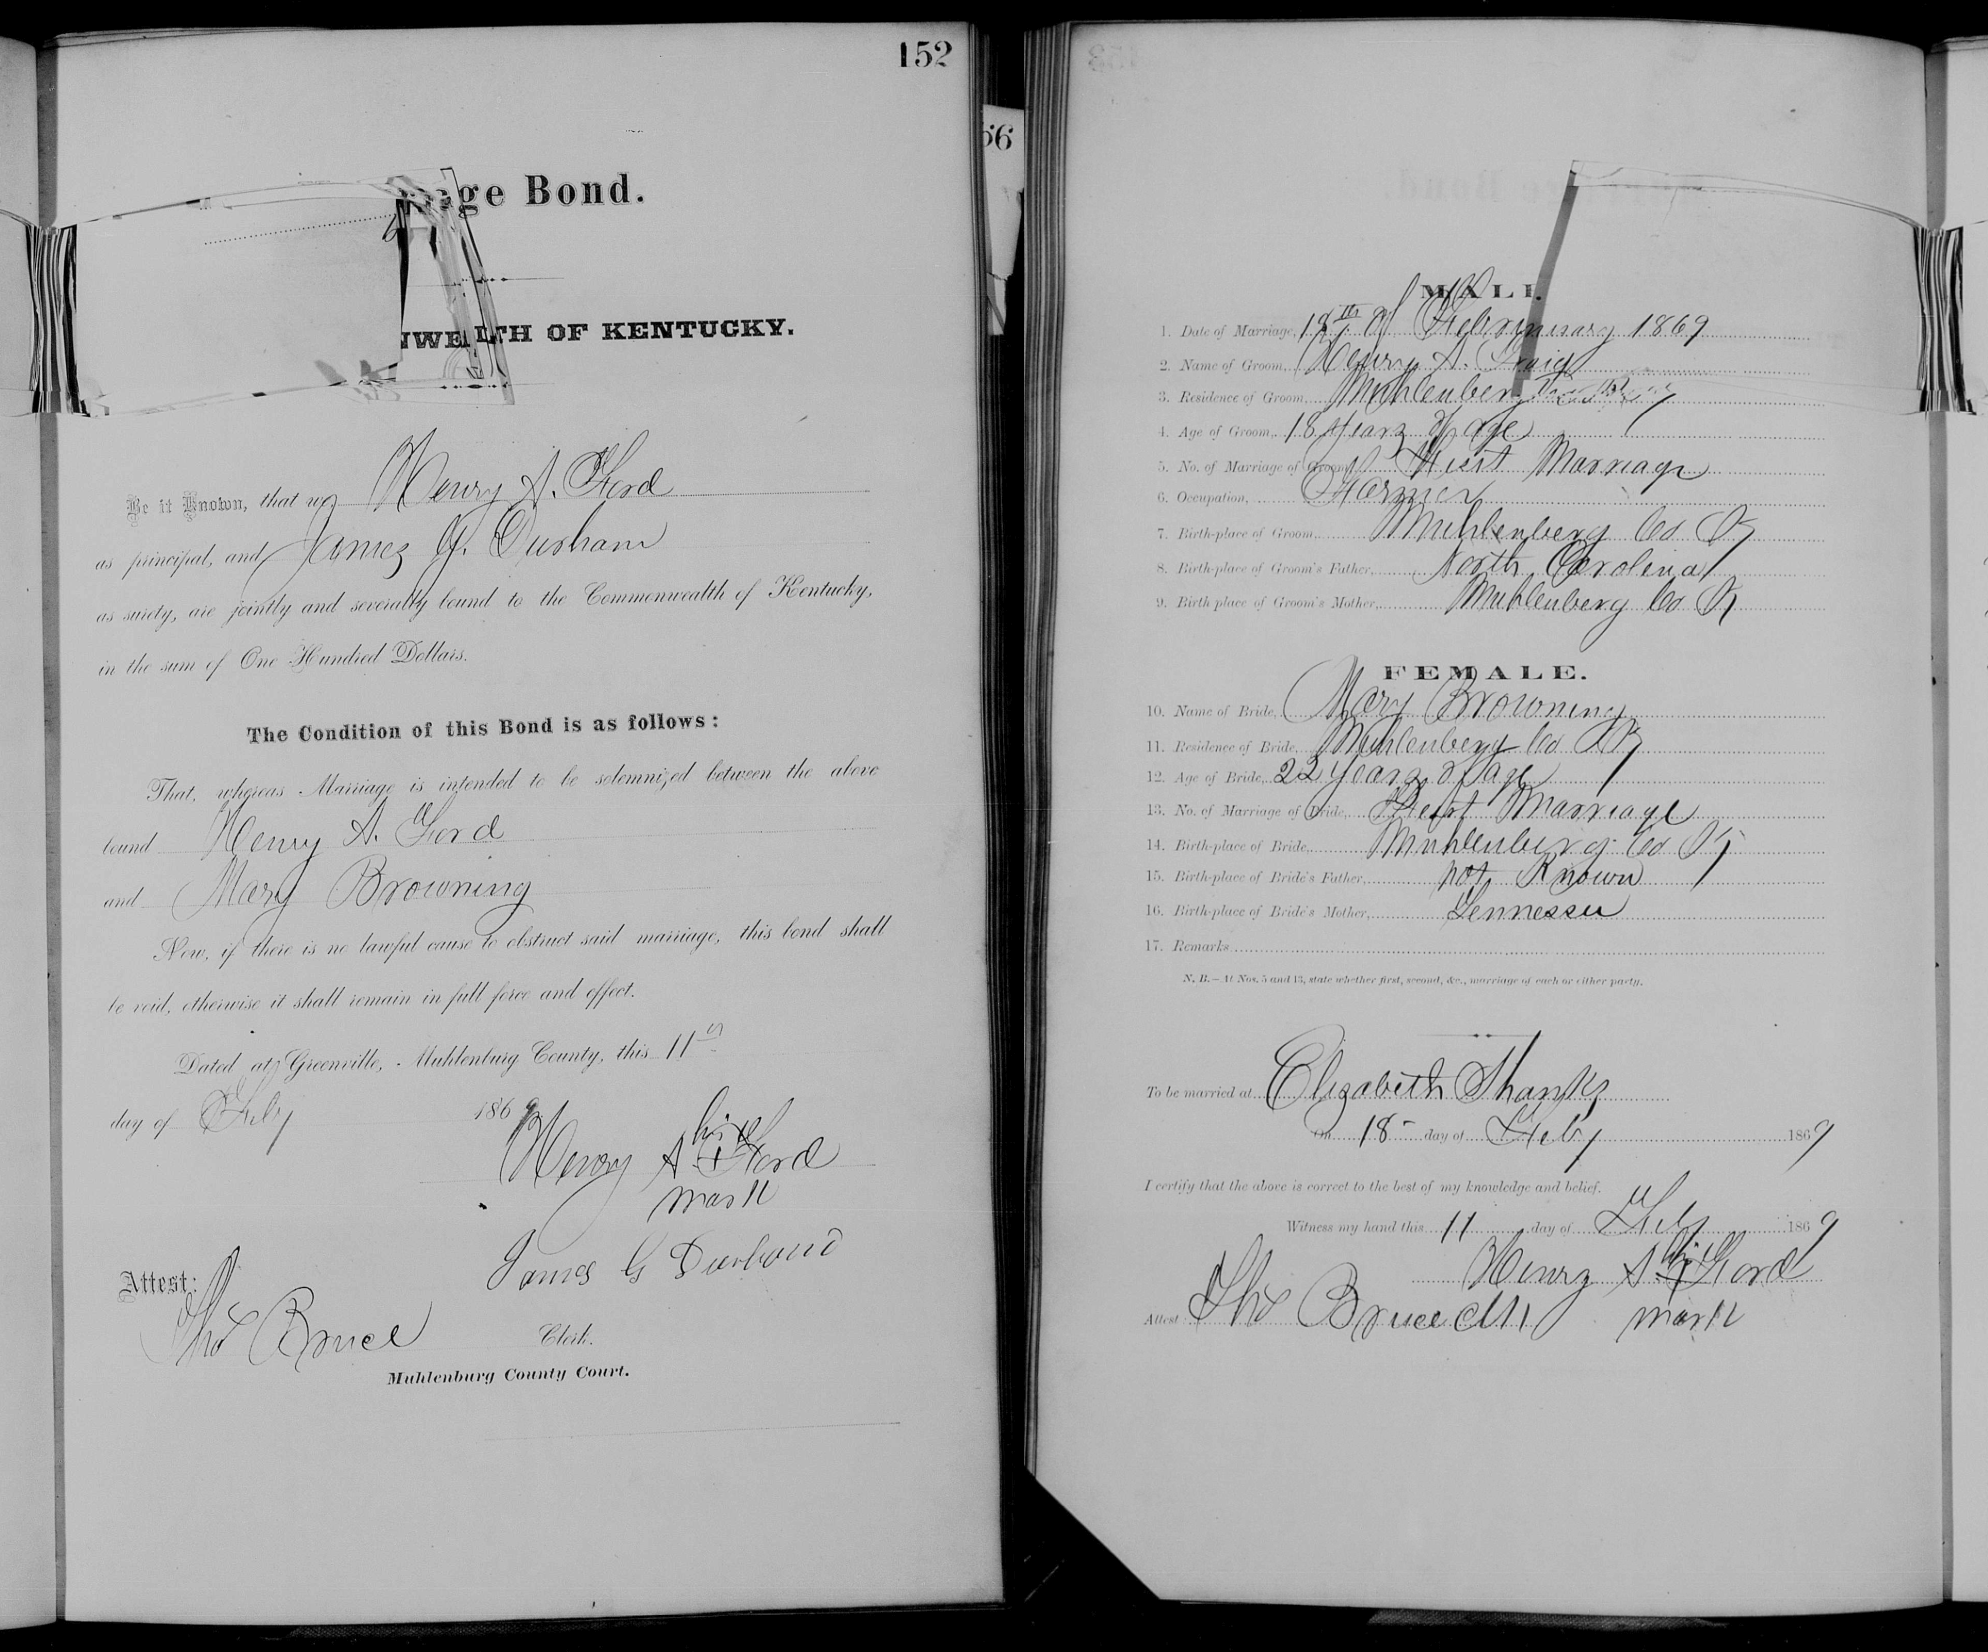 152
age Bond.
NWEALTH OF KENTUCKY.
Be it Known, that we, Henry A. Ford
as principal, and James G. Durham
as surety, are jointly and severally bound to the Commonwealth of Kentucky,
in the sum of One Hundred Dollars.
The Condition of this Bond is as follows:
That, whereas Marriage is intended to be solemnized between the above
bound Henry A. Ford
and Mary Browning
Now, if there is no lawful cause to obstruct said marriage, this bond shall
be void, otherwise it shall remain in full force and effect.
Dated at Greenville, Muhlenburg County, this 11th
day of Feby 1869
his
Henry A. + Ford
mark
James G
Attest:
Tho Bruce Clerk.
Muhlenburg County Court.
66
MALE
1. Date of Marriage, of February 1869
2. Name of Groom, Henry A.
3. Residence of Groom, Muhlenberg
4. Age of Groom, 18 years of age
5. No. of Marriage of Groom, First Marriage
6. Occupation, Farmer
7. Birth-place of Groom, Muhlenberg Co Ky
8. Birth-place of Groom's Father, North Carolina
9. Birth-place of Groom's Mother, Muhlenberg Co Ky
FEMALE.
10. Name of Bride, Mary Browning
11. Residence of Bride, Muhlenberg Co Ky
12. Age of Bride, 22 years of age
13. No. of Marriage of Bride, First Marriage
14. Birth-place of Bride, Muhlenberg Co Ky
15. Birth-place of Bride's Father, not Known
16. Birth-place of Bride's Mother, Tennessee
17. Remarks
N. B.—At Nos. 5 and 13, state whether first, second, &c., marriage of each or either party.
To be married at Elizabeth Shanks
On 18 day of Feby 1869
I certify that the above is correct to the best of my knowledge and belief.
Witness my hand this 11 day of Feby 1869
his
Henry A. + Ford
Attest Tho Bruce clk mark